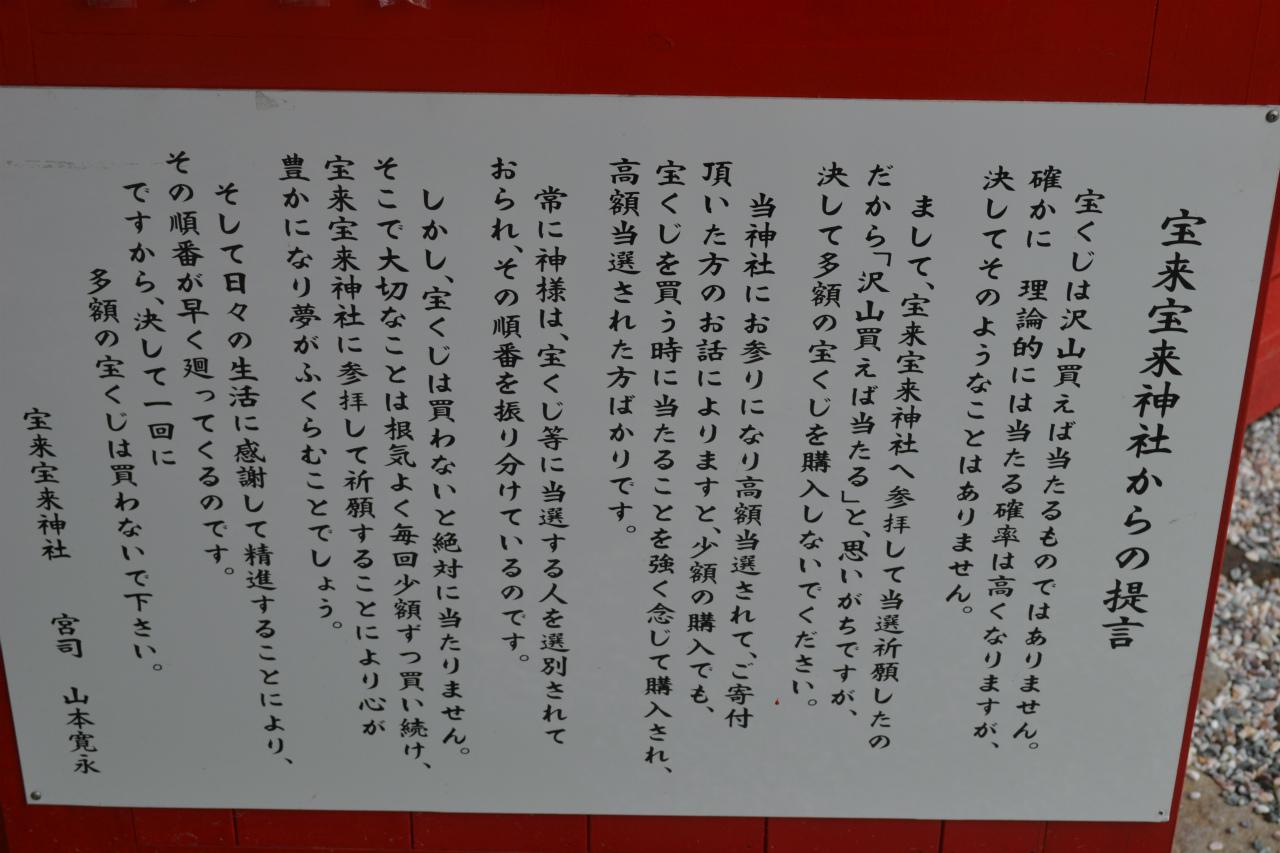 宝来宝来神社からの提言
宝くじは沢山買えば当たるものではありません。
確かに　理論的には当たる確率は高くなりますが、
決してそのようなことはありません。
まして、宝来宝来神社へ参拝して当選祈願したの
だから「沢山買えば当たる」と、思いがちですが、
決して多額の宝くじを購入しないでください。
当神社にお参りになり高額当選されて、ご寄付
頂いた方のお話によりますと、少額の購入でも、
宝くじを買う時に当たることを強く念じて購入され、
高額当選された方ばかりです。
常に神様は、宝くじ等に当選する人を選別されて
おられ、その順番を振り分けているのです。
しかし、宝くじは買わないと絶対に当たりません。
そこで大切なことは根気よく毎回少額ずつ買い続け、
宝来宝来神社に参拝して祈願することにより心が
豊かになり夢がふくらむことでしょう。
そして日々の生活に感謝して精進することにより、
その順番が早く廻ってくるのです。
ですから、決して一回に
多額の宝くじは買わないで下さい。
宝来宝来神社　宮司　山本寛永